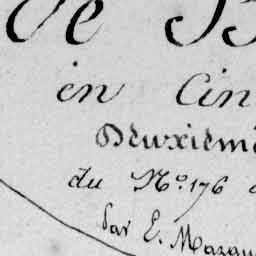 de B
en Cin
Deuxième
du Nº 176
Par E. Mazau